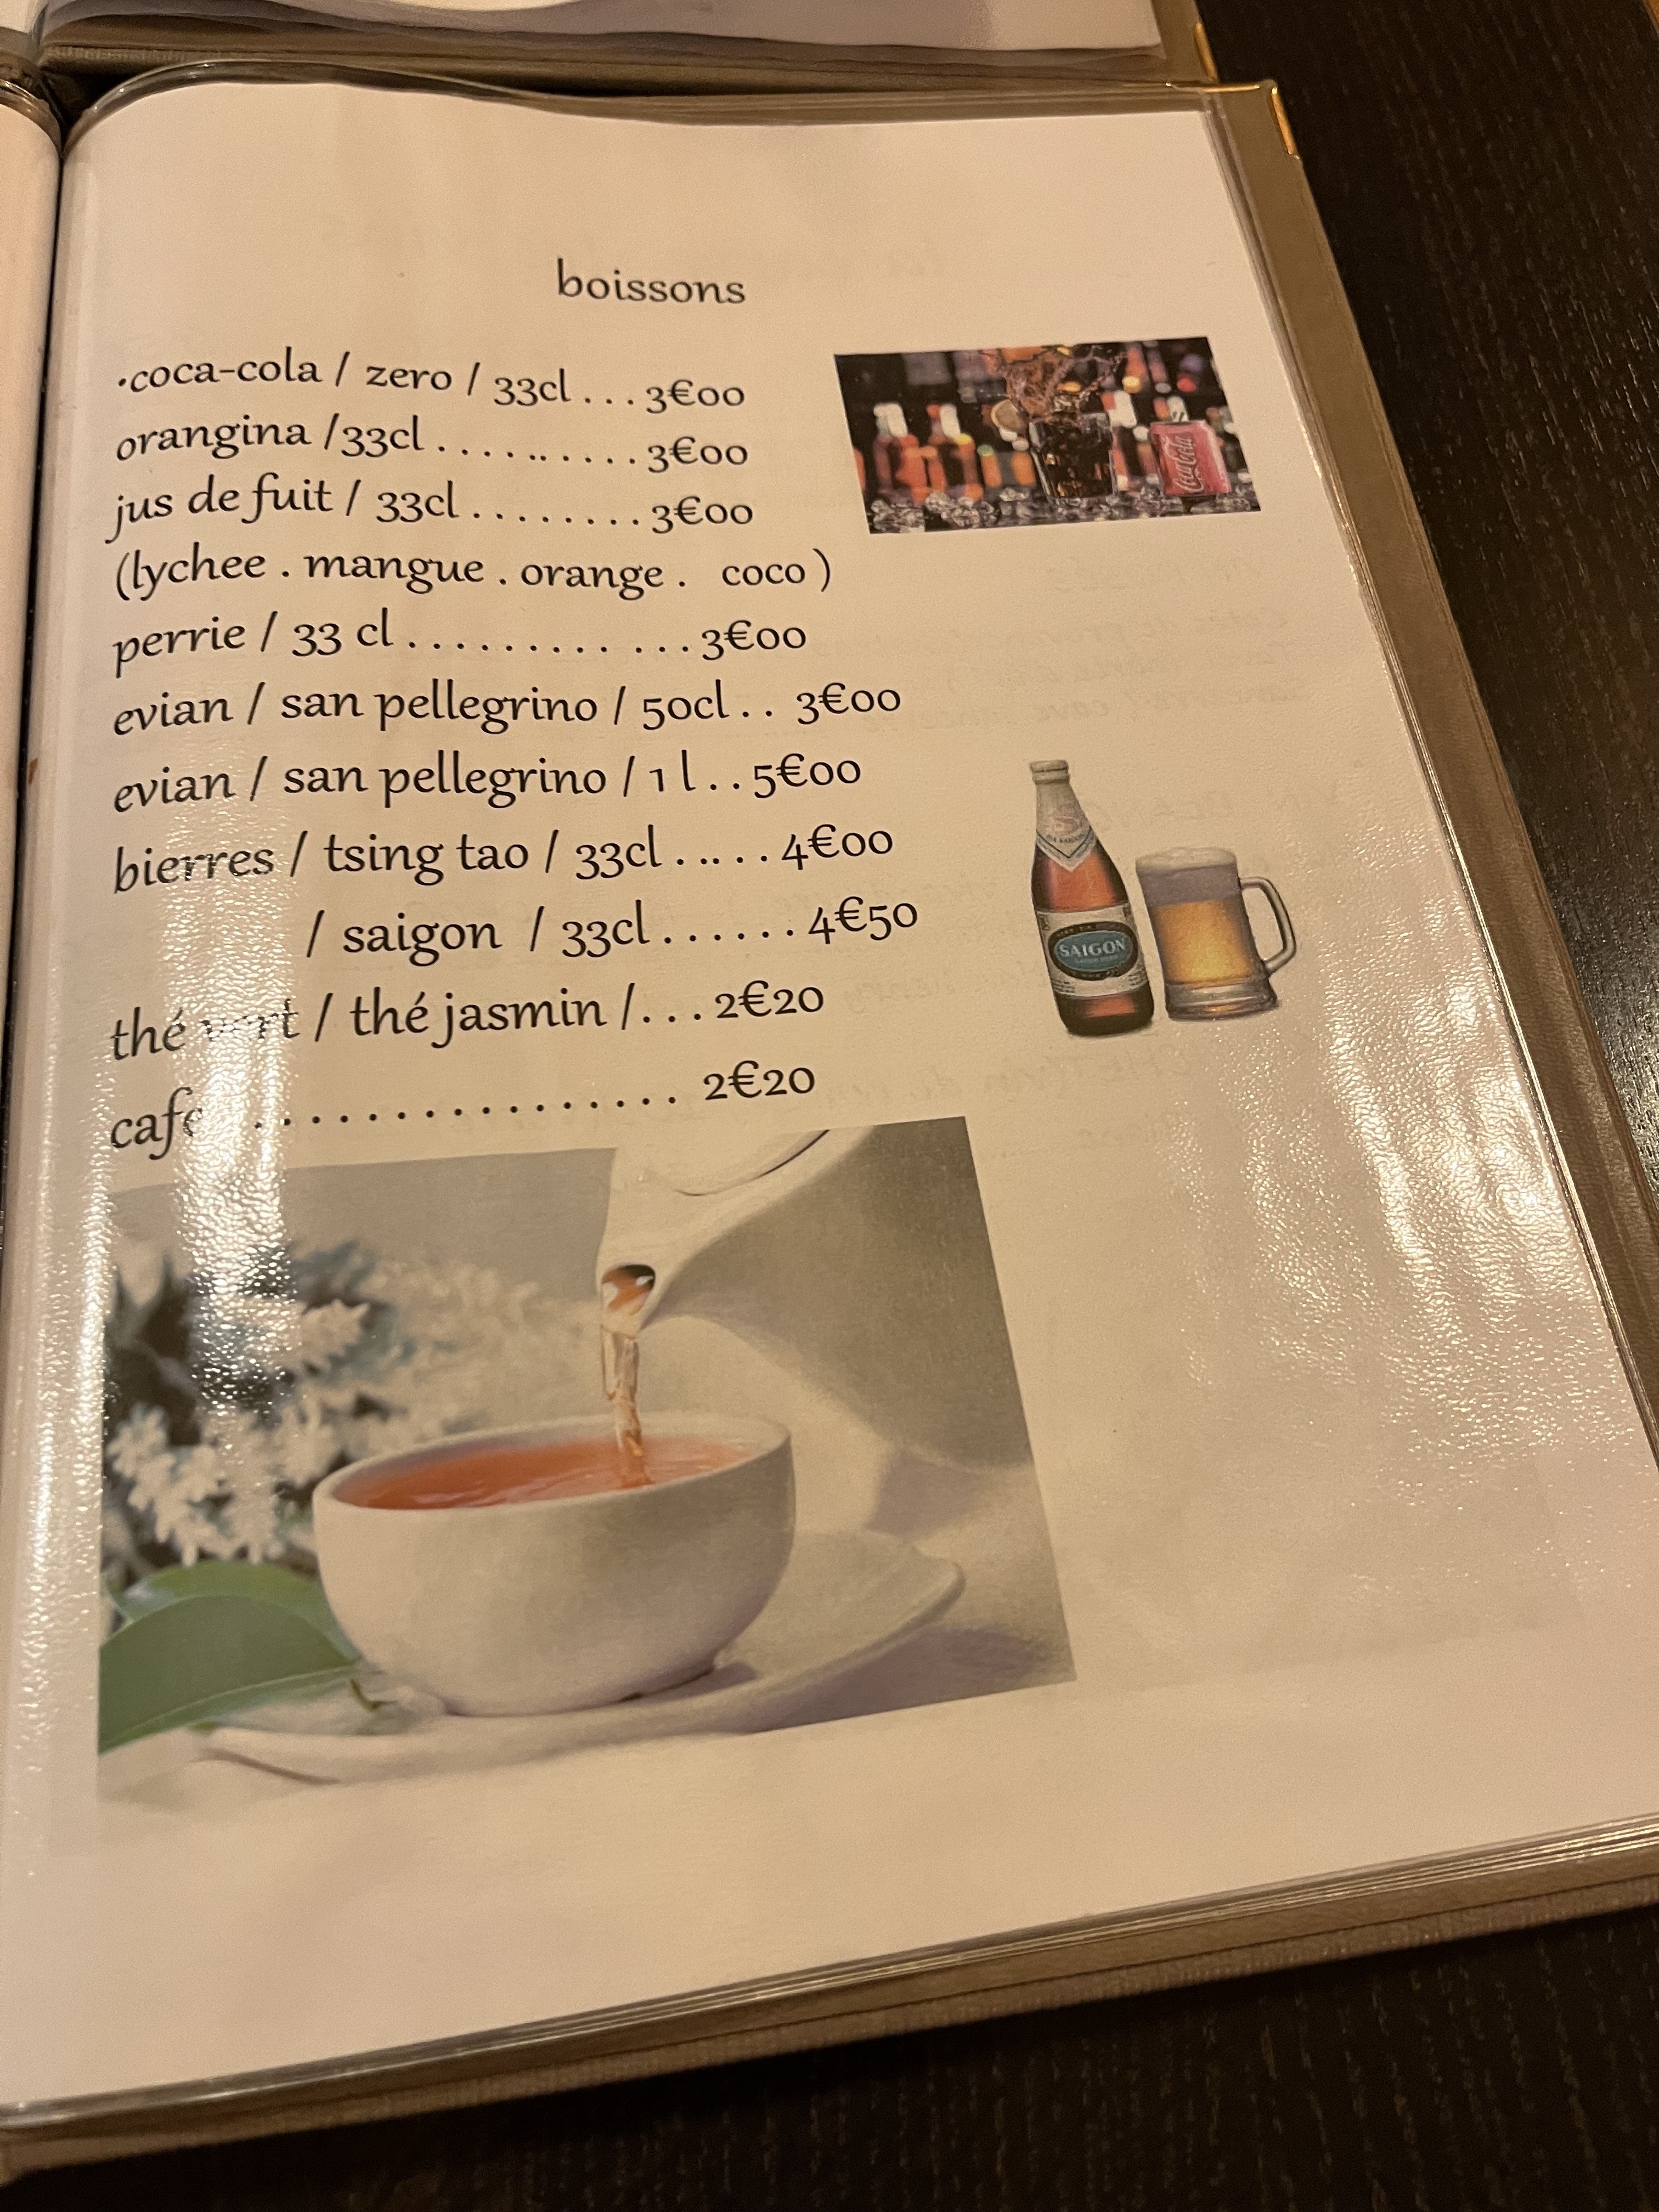 boissons
.coca-cola / zero / 33cl ... 3€00
orangina /33cl .......... 3€00
jus de fuit / 33cl ........ 3€00
(lychee . mangue . orange . coco )
perrie / 33 cl ............. 3€00
evian / san pellegrino / 50cl .. 3€00
evian / san pellegrino / 1 l .. 5€00
bierres / tsing tao / 33cl ..... 4€00
/ saigon / 33cl ...... 4€50
thé vert / thé jasmin /... 2€20
cafe ................. 2€20
Coca-Cola
SAIGON